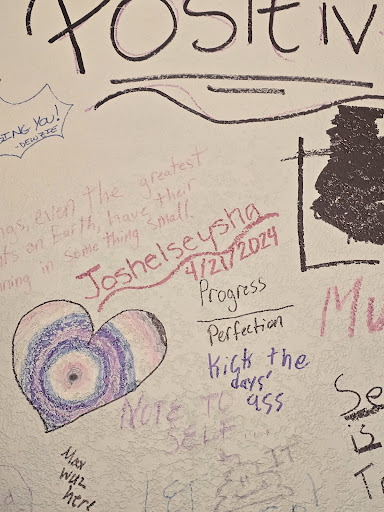 POSITIV
SING YOU!
-DEWZIE
ngs, even the greatest
ts on Earth, have their
nning in something small.
Joshelseysha
4/21/2024
Progress
Perfection
Kick the
days'
ass
Mu
NOTE TO
SELF
Se
is
Tr
Max
wuz
here